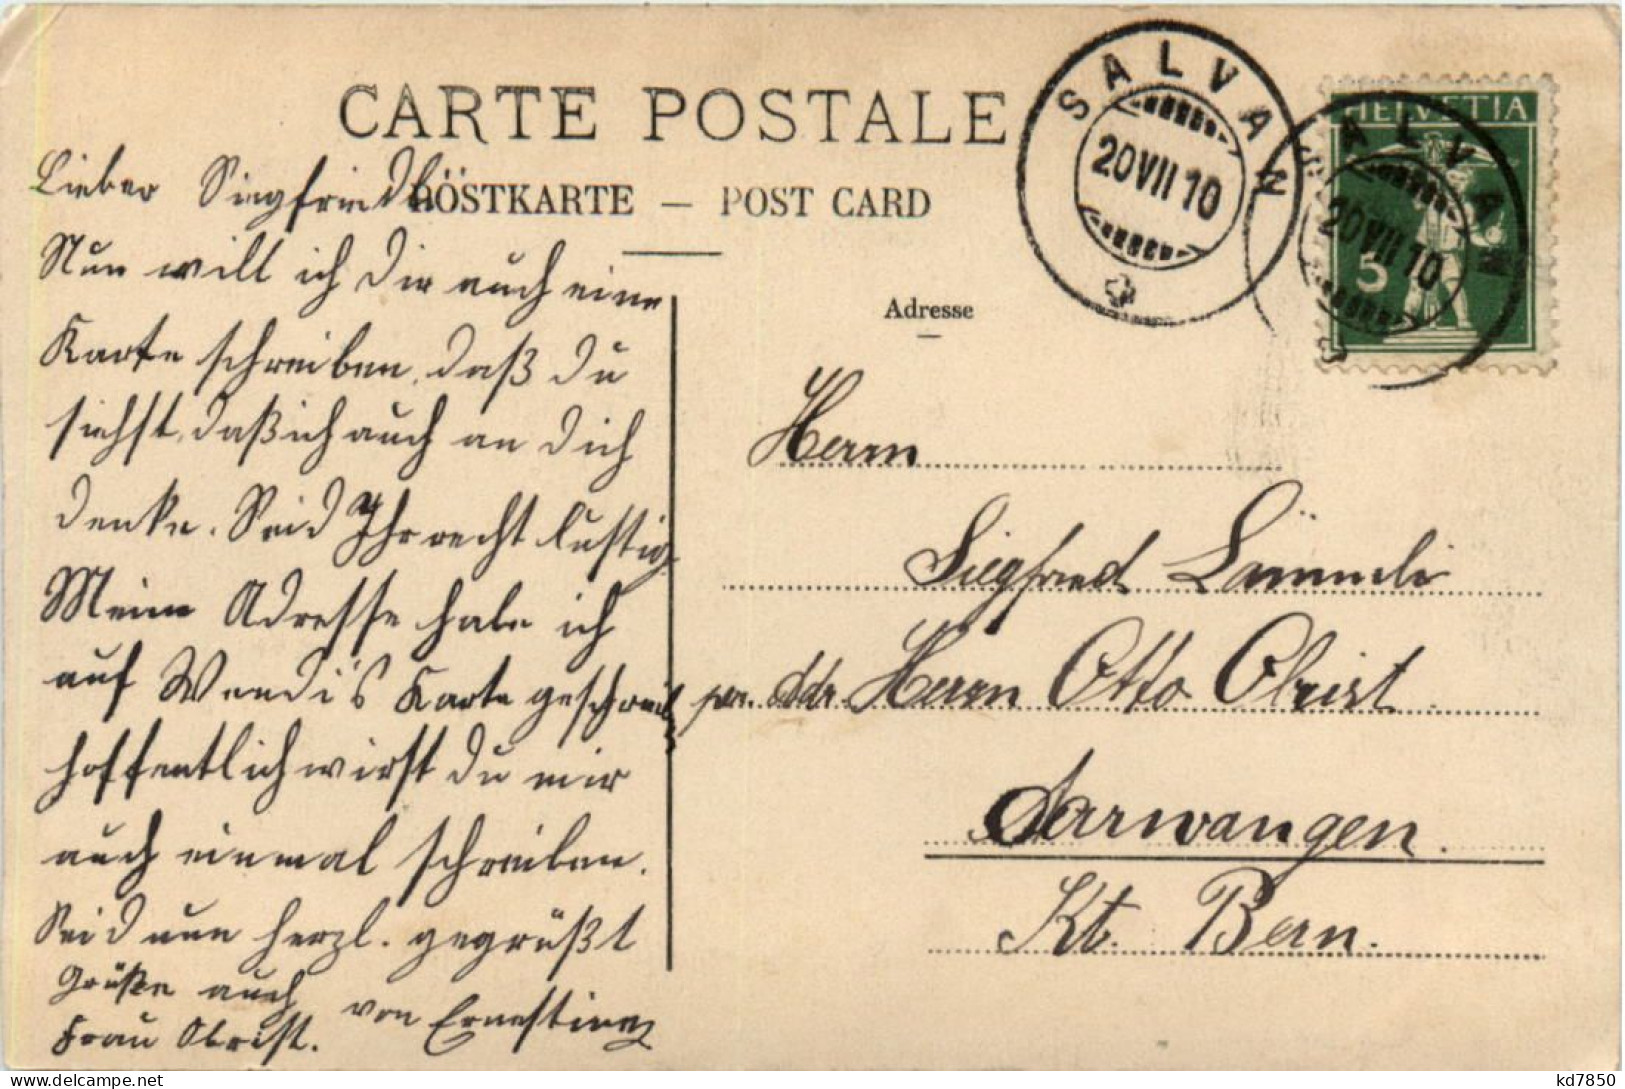 CARTE POSTALE
POSTKARTE — POST CARD
Adresse
SALVAN
20 VII 10
HELVETIA
5
SALVAN
20 VII 10
Lieber Siegfriedli
Nun will ich Dir auch eine
Karte schreiben, daß Du
siehst, daß ich auch an Dich
denke. Seid Ihr recht lustig
Meine Adresse habe ich
auf Werdi's Karte geschrieb
hoffentlich wirst Du mir
auch einmal schreiben.
Seid nun herzl. gegrüßt
von Ernestine
Grüße auch
Frau Obrist.
Herrn
Siegfried Lämmli
pr. Adr. Herrn Otto Obrist.
Aarwangen.
Kt. Bern.
kd7850